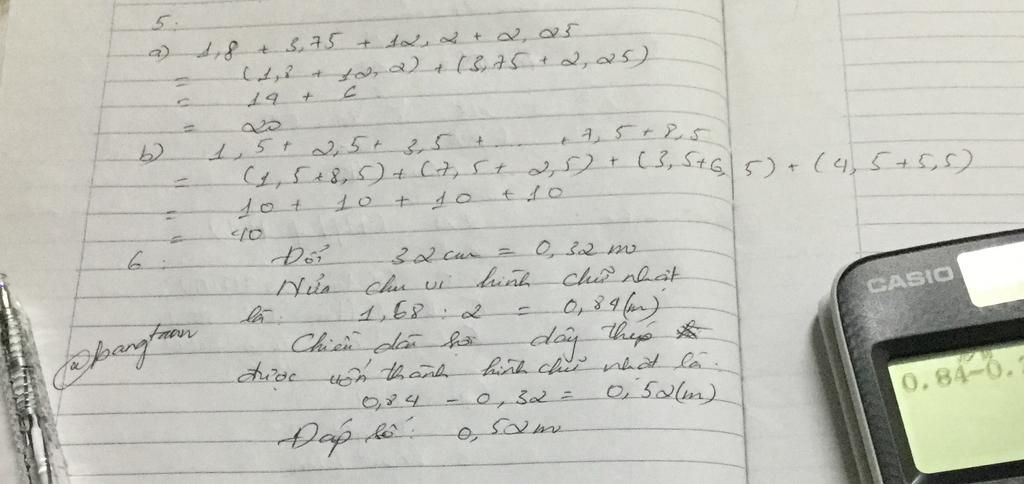 5:
a) 1,8 + 3,75 + 12,2 + 2,25
= (1,8 + 12,2) + (3,75 + 2,25)
= 14 + 6
= 20
b) 1,5 + 2,5 + 3,5 + ... + 7,5 + 8,5
= (1,5+8,5) + (7,5 + 2,5) + (3,5+6,5) + (4,5+5,5)
= 10 + 10 + 10 + 10
= 40
6: Đổi 32 cm = 0,32 m
Nửa chu vi hình chữ nhật
là: 1,68 : 2 = 0,84(m)
Chiều dài sợi dây thép
được uốn thành hình chữ nhật là:
0,84 - 0,32 = 0,52(m)
Đáp số: 0,52m
@bangtran
CASIO
0.84-0.